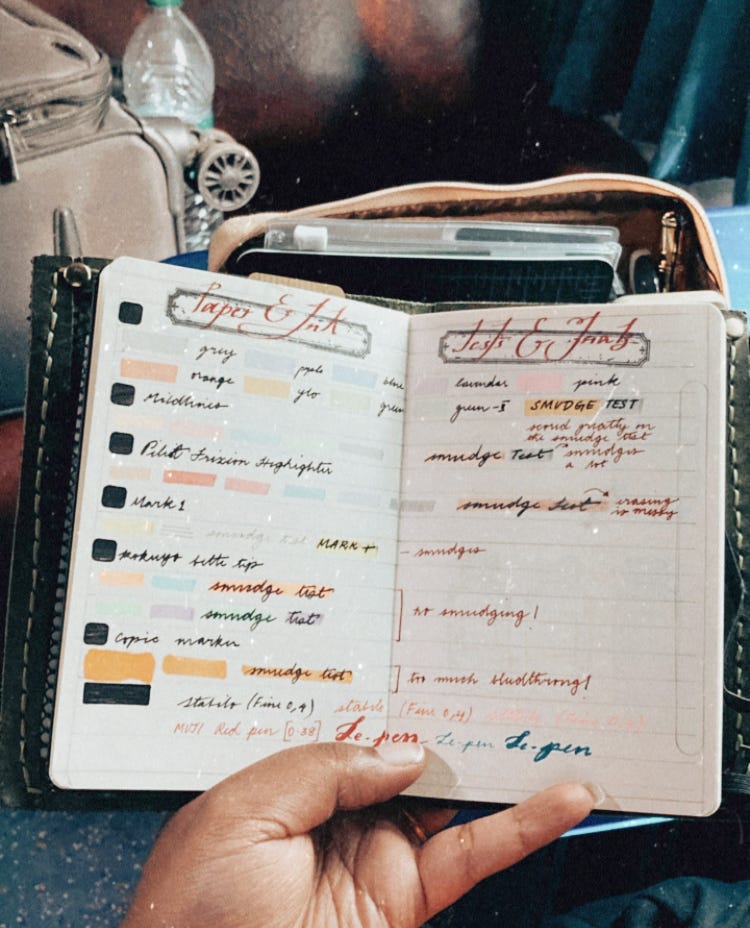 Paper & Ink
grey pple blue
orange ylo green
Mildliners
Pilot Frixion Highlighter
Mark 1
smudge test MARK +
Kokuyo bettle tip
smudge test
smudge test
Copic marker
smudge test
stabilo (Fine 0,4)
MUJI Red pen [0.38] Le-pen
Tests & Trials
lavendar pink
green-I SMUDGE TEST
scored greatly on
the smudge test
smudge Test smudges
a lot
smudge test erasing
is messy
- smudges
no smudging!
too much bledthroug!
stabilo (Fine 0,4) stabilo (Fine 0,4)
Le-pen Le-pen